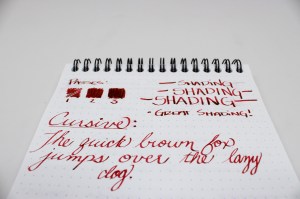 Passes:
1 2 3
- SHADING -
- SHADING -
- SHADING -
- GREAT SHADING!
Cursive:
The quick brown fox
jumps over the lazy
dog.